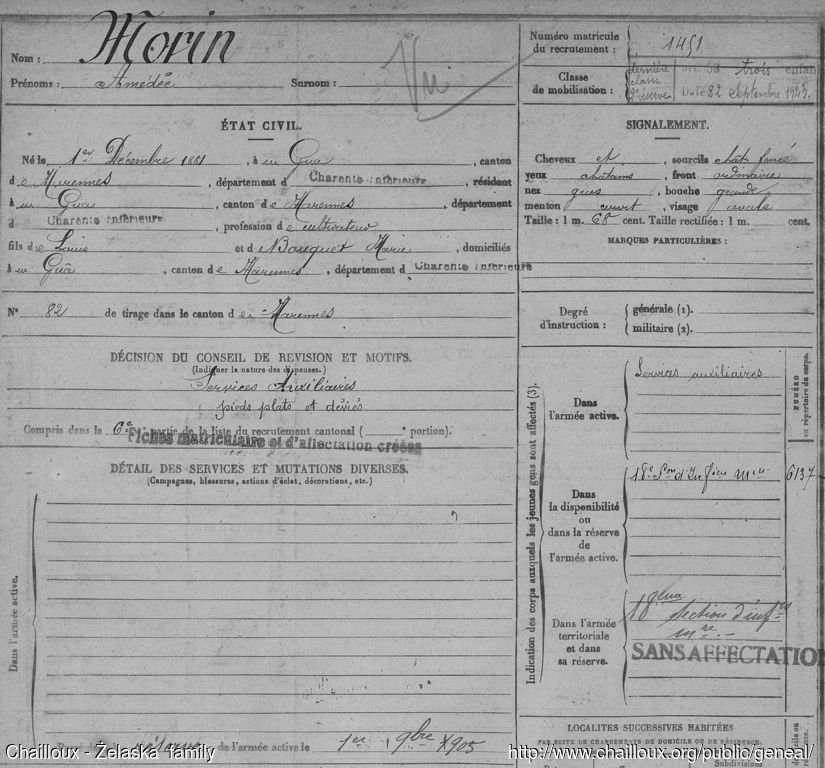 Nom : Morin
Prénoms : Amédée Surnom :
Vu
Numéro matricule du recrutement : 1451
Classe de mobilisation : dernière classe 2e réserve Art. 58 trois enfan
Daté 22 Septembre 1925.
ÉTAT CIVIL.
Né le 1er Décembre 1881, à u Gua, canton
de Marennes, département d Charente Inférieure, résidant
à u Gua, canton de Marennes, département
d Charente Inférieure, profession de cultivateur
fils de Louis et de Bouquet Marie, domiciliés
à u Guâ, canton de Marennes, département d Charente Inférieure
N° 82 de tirage dans le canton de Marennes
DÉCISION DU CONSEIL DE REVISION ET MOTIFS.
(Indiquer la nature des dispenses.)
Services Auxiliaires
pieds plats et déviés
Compris dans la 6e partie de la liste du recrutement cantonal ( portion).
Fiches matriculaire et d'affectation créées
DÉTAIL DES SERVICES ET MUTATIONS DIVERSES.
(Campagnes, blessures, actions d'éclat, décorations, etc.)
Dans l'armée active.
réserve de l'armée active le 1er 9bre 1905
SIGNALEMENT.
Cheveux et, sourcils chât. foncé
yeux châtains, front ordinaire
nez gros, bouche grande
menton court, visage ovale
Taille : 1 m. 68 cent. Taille rectifiée : 1 m. cent.
MARQUES PARTICULIÈRES :
Degré d'instruction :
générale (1).
militaire (2).
Indication des corps auxquels les jeunes gens sont affectés (3).
NUMÉRO au répertoire du corps.
Dans l'armée active.
Services auxiliaires
Dans la disponibilité ou dans la réserve de l'armée active.
18e Son d'Infiers Mres 6137
Dans l'armée territoriale et dans sa réserve.
18ème Section d'infres
mre.-
SANS AFFECTATION
LOCALITÉS SUCCESSIVES HABITÉES
PAR SUITE DE CHANGEMENTS DE DOMICILE OU DE RÉSIDENCE.
Subdivisions
Chailloux - Żelaska family
http://www.chailloux.org/public/geneal/